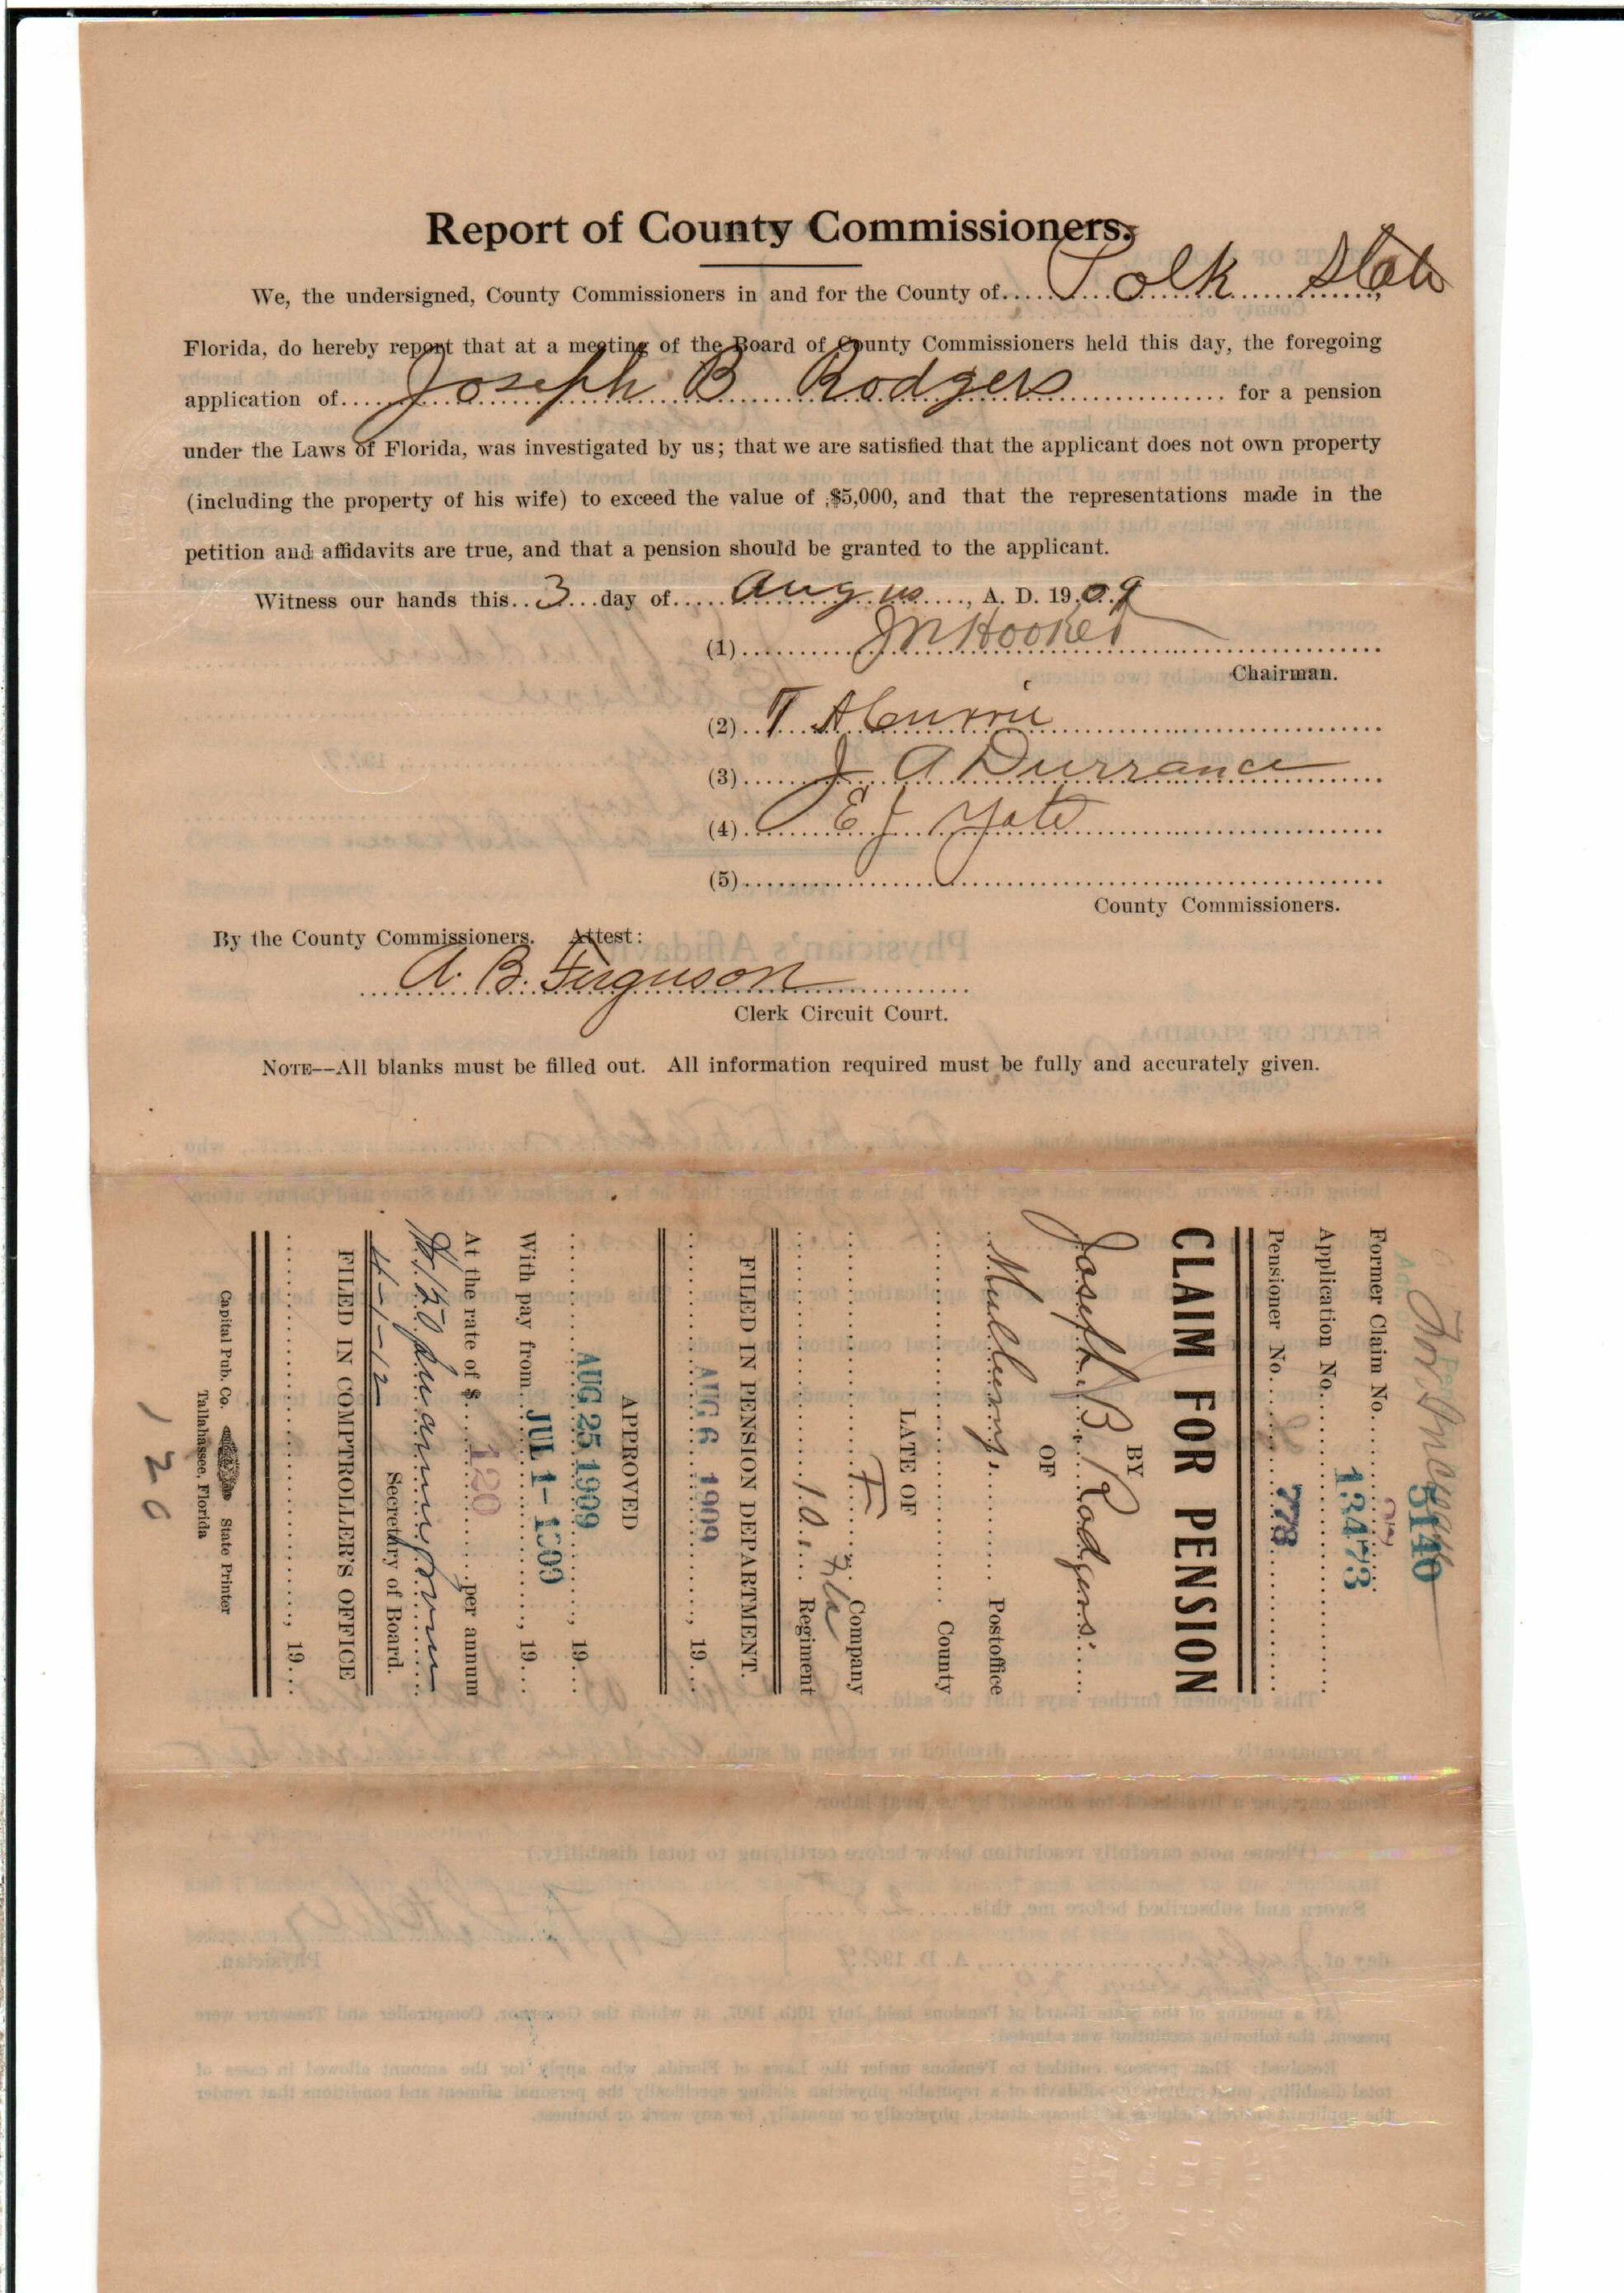 Report of County Commissioners.
We, the undersigned, County Commissioners in and for the County of Polk State
Florida, do hereby report that at a meeting of the Board of County Commissioners held this day, the foregoing
application of Joseph B Rodgers for a pension
under the Laws of Florida, was investigated by us; that we are satisfied that the applicant does not own property
(including the property of his wife) to exceed the value of $5,000, and that the representations made in the
petition and affidavits are true, and that a pension should be granted to the applicant.
Witness our hands this 3 day of Augus, A. D. 1909
(1) J N Hooker
Chairman.
(2) T A Currie
(3) J A Durrance
(4) E J Yate
(5)
County Commissioners.
By the County Commissioners. Attest:
A. B. Ferguson
Clerk Circuit Court.
NOTE--All blanks must be filled out. All information required must be fully and accurately given.
5140
Former Claim No.
Application No. 13473
Pensioner No. 778
CLAIM FOR PENSION
BY
Joseph B. Rodgers.
OF
Mulberry, Postoffice
County
LATE OF
F Company
10, Fla Regiment
FILED IN PENSION DEPARTMENT.
AUG 6 1909, 19
APPROVED
AUG 25 1909, 19
With pay from JUL 1-1909, 19
At the rate of $ 120 per annum
4-1-12
Secretary of Board.
FILED IN COMPTROLLER'S OFFICE
, 19
Capital Pub. Co. State Printer
Tallahassee, Florida
120